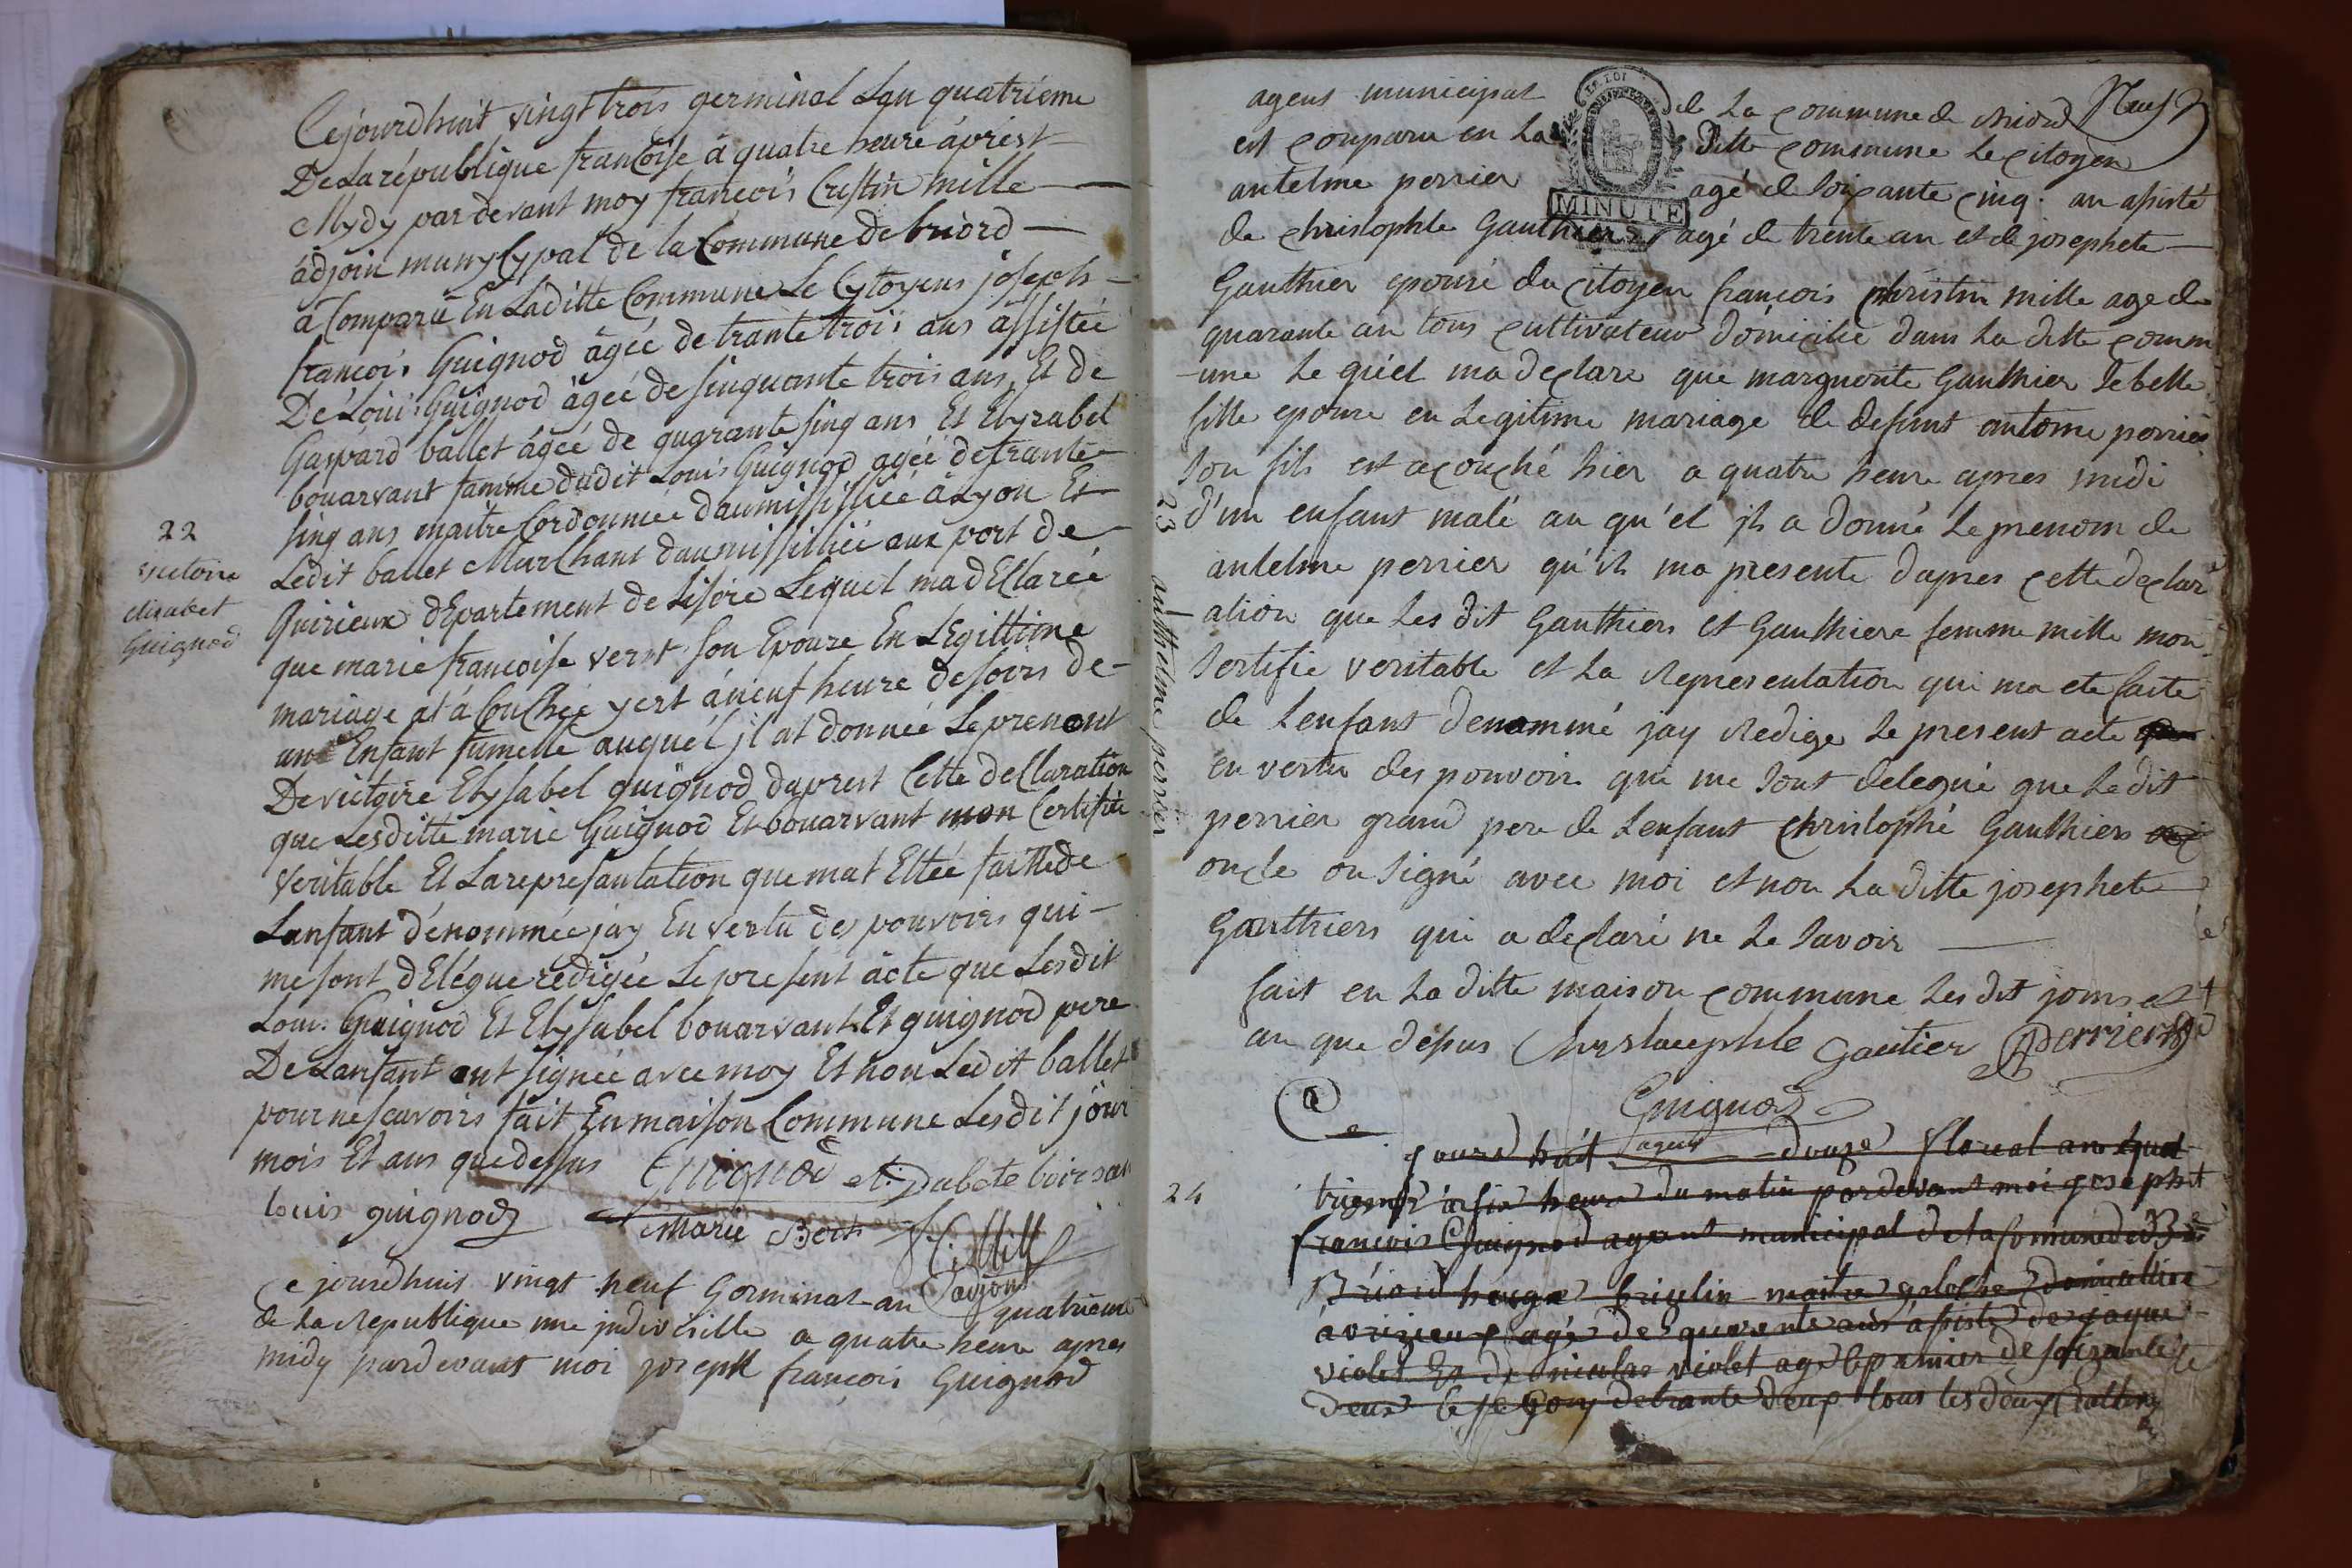 Cejourdhuit vingt trois germinal Lan quatrième
De La république francoise à quatre heure áprest
Mydy par devant moy francois Cristin mille
ádjoin munycypal de la Commune de briord
a Comparû En Laditte Commune Le Cytoyens joseph
francois Guignod âgéé de trante trois ans assistéé
De Loüis Guignod âgéé de sinquante trois ans Et de
Gaspard ballet âgéé de quarante sinq ans Et Elyzabel
bouarvant famme dudit Louis Guignod agéé de trante
sinq ans maitre Cordonniée daumissilliéé à Lyon Et
Ledit ballet Marchant daumissilliéé aux port de
Quirieux dEpartement de Lisère Lequel ma dEllaréé
que marie francoise verst son Epouze En LEgittime
mariage at á Couchéé yert á neuf heure de soirs de
une Enfant fumelle auquél jl at donnéé Le prenont
De victoire Elysabel guignod daprest Cette deClaration
que Lesditte marie Guignod Et bouarvant mon Certifiéé
veritable Et La represantation que mat Ettéé faitte de
Lanfant dénomméé jay En vertu des pouvoirs qui
me sont dElégue redigéé Le present àcte que Lesdit
Louis Guignod Et Elysabel bouarvant Et guignod pere
De Lanfant ont signéé avec moy Et non Ledit ballet
pour ne scavoirs fait En maison Commune Lesdit jour
mois Et ans que dessus Guignod
louis guignod Marie
f C Mille
adjoint
22
victoire
elisabet
Guignod
Ce jourdhuis vingt neuf Germinal an quatrieme
de La Republique une jndivisille a quatre heure apres
midy pardevant moi joseph françois Guignod
agens municipal de La Commune de Briord
est comparu en La ditte commune Le citoyen
LA LOI
MINUTE
antelme perrier agé de soixante cinq an assisté
de christophle Gauthiers agé de trente an et de josephete
Gauthier epouse du citoyen francois christin mille age de
quarante an tous cultivateur domicilie dans La ditte comm
une Le quel ma declare que marguerite Gauthier se belle
fille epouse en Legitime mariage de defunt antoine perrier
son fils est acouché hier a quatre heure apres midi
d'un enfant malé au qu'el jls a donné Le prenom de
antelme perrier qu'ils ma presente dapres cette declar
ation que Les dit Gauthiers et Gauthiere femme mille mon
sertifie veritable et La Representation qui ma ete faite
de Lenfant denommé jay Redige Le present acte
en vertu des pouvoir qui me sont delegué que Ledit
perrier grand pere de Lenfant christophé Gauthiers
oncle on signé avec moi et non La ditte josephete
Gauthiers qui a declaré ne Le savoir
fait en La ditte maison commune Les dit jours et
an que desus Chrstauphle Gautier Perrier
Guignod
agent
23 anthelme perrier
24
Ce
jourd huit douze floreal an quat
trieme à six heure du matin pardevant moi joseph
françois Guignod agent municipal de la Commune de
Briord maitre
agé de quarente ans assisté de jaque
violet Et de nicolas violet age le premier de soizante
deux le segon de trante deux tous les deux